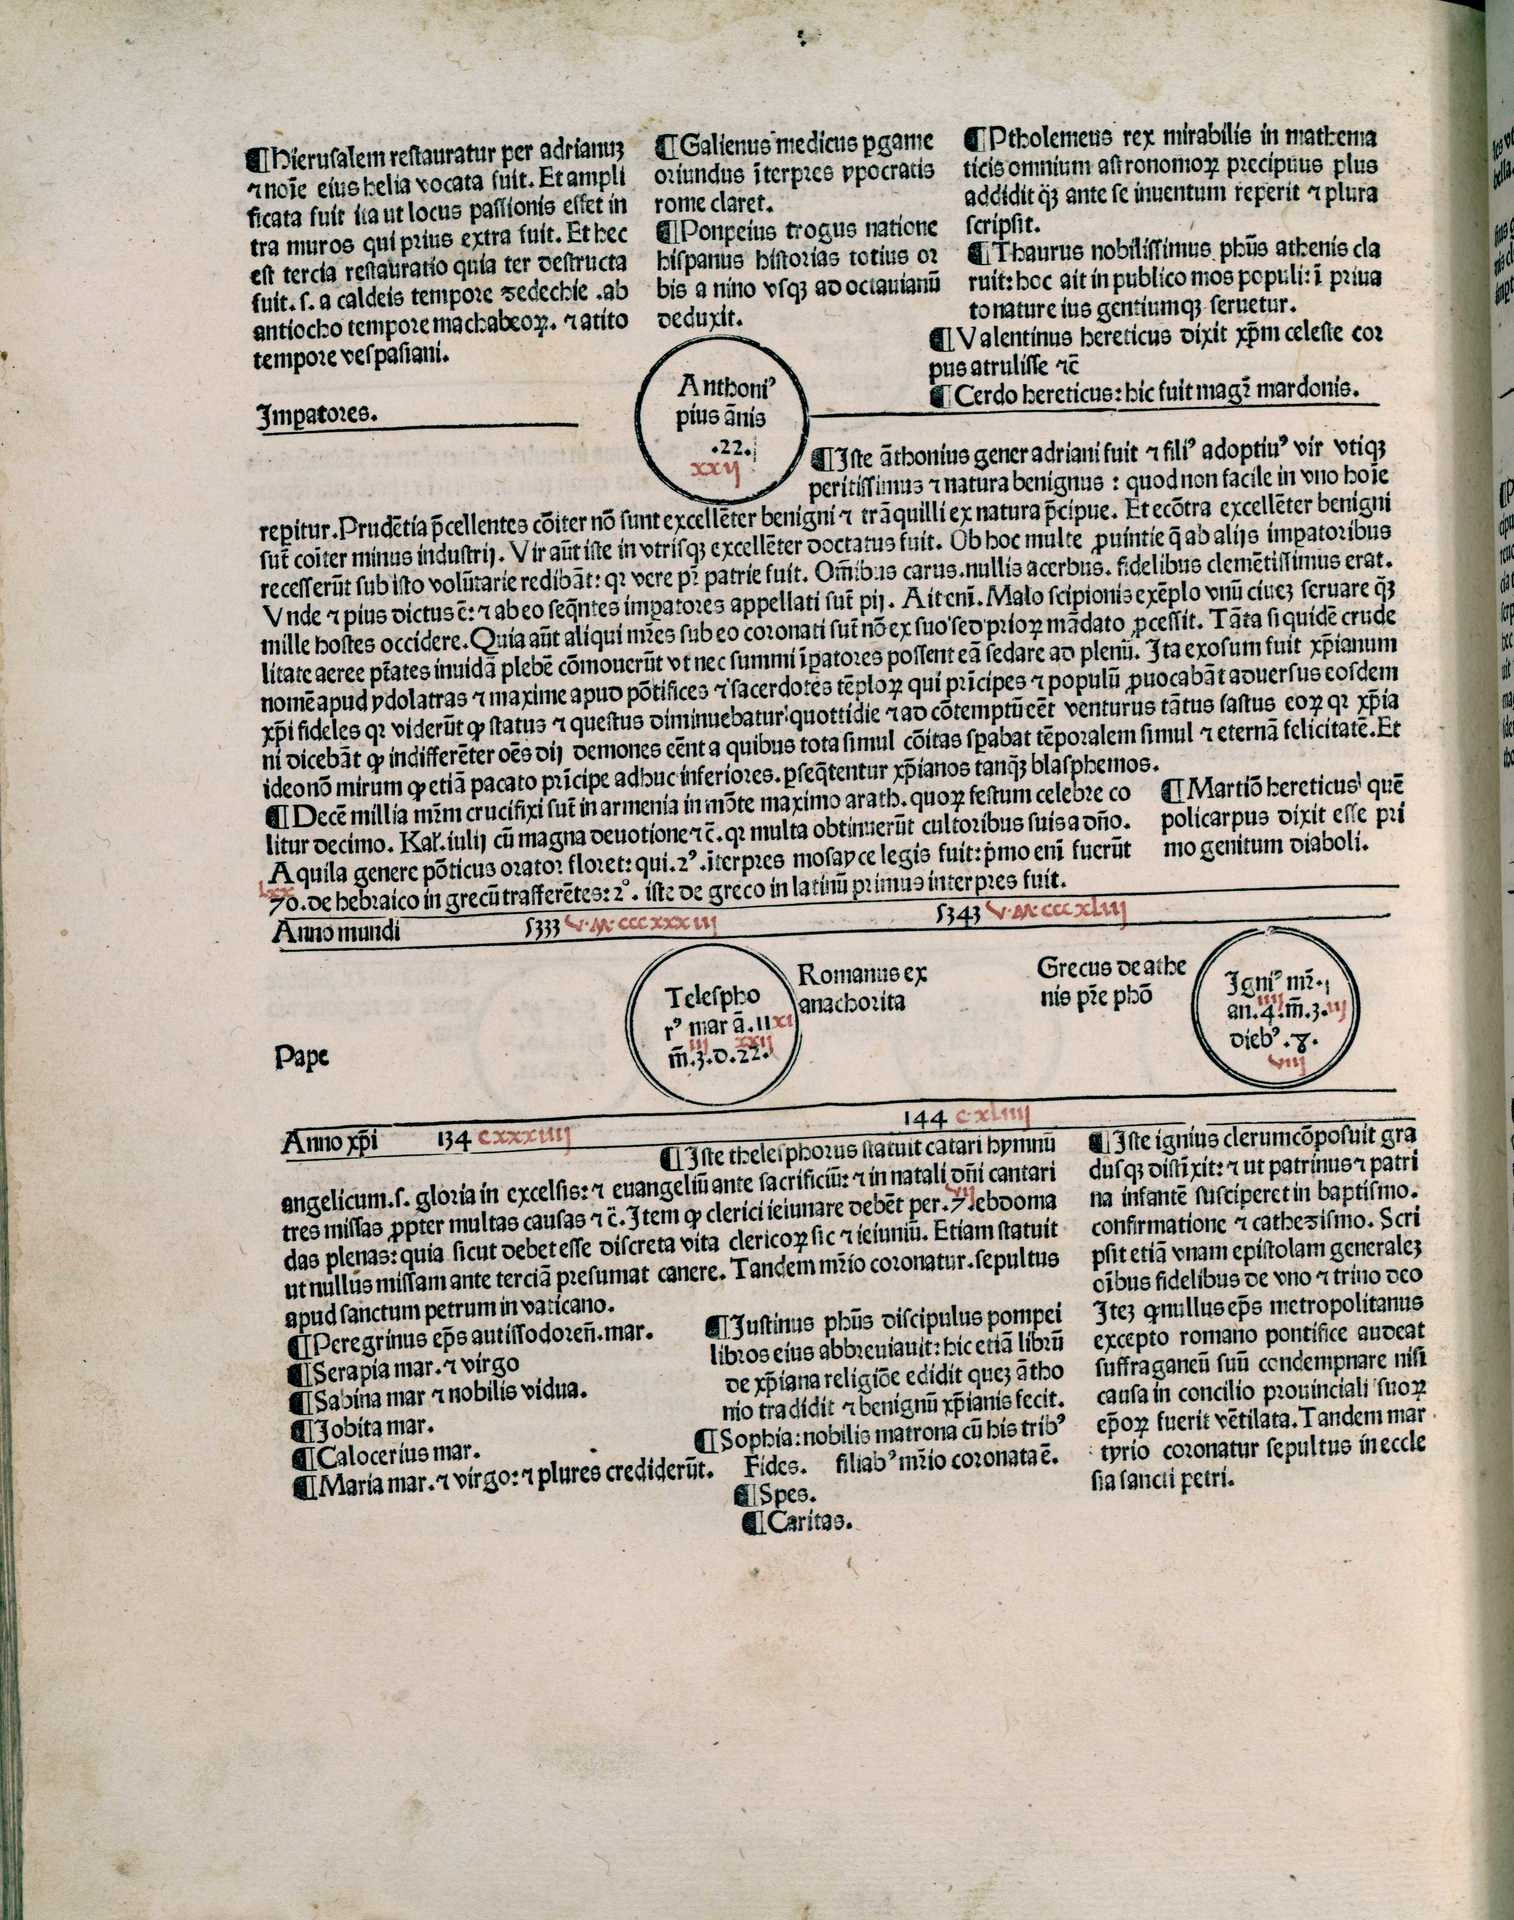 ¶Hierusalem restauratur per adrianuʒ
⁊ noīe eius helia vocata fuit. Et ampli
ficata fuit ita ut locus passionis esset in
tra muros qui prius extra fuit. Et hec
est tercia restauratio quia ter destructa
fuit. s. a caldeis tempore zedechie .ab
antiocho tempore machabeoꝝ. ⁊ a tito
tempore vespasiani.
¶Galienus medicus ꝑgame
oriundus īterpres ypocratis
rome claret.
¶Ponpeius trogus natione
hispanus historias totius or
bis a nino vsqꝫ ad octauianū
deduxit.
¶Ptholemeus rex mirabilis in mathema
ticis omnium astronomoꝝ precipuus plus
addidit qꝫ ante se inuentum reperit ⁊ plura
scripsit.
¶Thaurus nobilissimus phūs athenis cla
ruit: hoc ait in publico mos populi: ī priua
to nature ius gentiumqꝫ seruetur.
¶Valentinus hereticus dixit xp̄m celeste cor
pus atrulisse ⁊c̄
¶Cerdo hereticus: hic fuit magr̄ mardonis.
Imꝑatores.
Anthoniꝰ
pius ānis
.22.
xxij
¶Iste āthonius gener adriani fuit ⁊ filiꝰ adoptiuꝰ vir vtiqꝫ
peritissimus ⁊ natura benignus : quod non facile in vno hoīe
reꝑitur. Prudētia p̄cellentes cōiter nō sunt excellēter benigni ⁊ trāquilli ex natura p̄cipue. Et ecōtra excellēter benigni
sut̄ coīter minus industrij. Vir aūt iste in vtrisqꝫ excellēter doctatus fuit. Ob hoc multe ꝓuintie q̄ ab alijs imꝑatoribus
recesserūt sub isto volūtarie redibāt: qꝛ vere pr̄ patrie fuit. Om̄ibus carus. nullis acerbus. fidelibus clemētissimus erat.
Vnde ⁊ pius dictus ē: ⁊ ab eo seq̄ntes imꝑatores appellati sut̄ pij. Ait enī. Malo scipionis exēplo vnū ciueʒ seruare qꝫ
mille hostes occidere. Quia aūt aliqui mr̄es sub eo coronati sut̄ nō ex suo sed prioꝝ mādato ꝓcessit. Tāta si quidē crude
litate aeree pt̄ates inuidā plebē cōmouerūt vt nec summi īꝑatores possent eā sedare ad plenū. Ita exosum fuit xp̄ianum
nomē apud ydolatras ⁊ maxime apud pōtifices ⁊ sacerdotes tēploꝝ qui prīcipes ⁊ populū ꝓuocabāt aduersus eosdem
xp̄i fideles qꝛ viderūt ꝙ status ⁊ questus diminuebatur quottidie ⁊ ad cōtemptū eēt venturus tātus fastus eoꝝ qꝛ xp̄ia
ni dicebāt ꝙ indifferēter oēs dij demones eēnt a quibus tota simul cōitas sꝑabat tēporalem simul ⁊ eternā felicitatē. Et
ideo nō mirum ꝙ etiā pacato prīcipe adhuc inferiores. ꝑseq̄tentur xp̄ianos tanqꝫ blasphemos.
¶Decē millia mr̄m crucifixi sut̄ in armenia in mōte maximo arath. quoꝝ festum celebre co
litur decimo. Kal̄. iulij cū magna deuotione ⁊ c̄. qꝛ multa obtinuerūt cultoribus suis a dn̄o.
Aquila genere pōticus orator floret: qui. 2ꝰ. īterpres mosayce legis fuit: p̄mo enī fuerūt
lxx
70. de hebraico in grecū trasferētes: 2ꝰ. iste de greco in latinū primus interpres fuit.
¶Martiō hereticus quē
policarpus dixit esse pri
mo genitum diaboli.
Anno mundi 5333 v.M.cccxxxiij 5343 v.M.cccxliij
Pape
Telespho
rꝰ mar ā. 11 xi
iij xxij
m̄. 3. d. 22.
Romanus ex
anachorita
Grecus de athe
nis pr̄e phō
Igniꝰ mr̄.
iiij
an. 4. m̄. 3. iij
diebꝰ. 8.
viij
Anno xp̄i 134 cxxxiiij 144 c.xliiij
¶Iste thelesphorus statuit catari hymnū
angelicum. s. gloria in excelsis: ⁊ euangeliū ante sacrificiū: ⁊ in natali dn̄i cantari
vij
tres missas ꝓpter multas causas ⁊ c̄. Item ꝙ clerici ieiunare debēt per. 7. ebdoma
das plenas: quia sicut debet esse discreta vita clericoꝝ sic ⁊ ieiuniū. Etiam statuit
ut nullus missam ante terciā presumat canere. Tandem mr̄io coronatur. sepultus
apud sanctum petrum in vaticano.
¶Peregrinus ep̄s autissodoreñ. mar.
¶Serapia mar. ⁊ virgo
¶Sabina mar ⁊ nobilis vidua.
¶Jobita mar.
¶Calocerius mar.
¶Maria mar. ⁊ virgo: ⁊ plures crediderūt.
¶Iustinus phūs discipulus pompei
libros eius abbreuiauit: hic etiā librū
de xp̄iana religiōe edidit queʒ ātho
nio tradidit ⁊ benignū xp̄ianis fecit.
¶Sophia: nobilis matrona cū his tribꝰ
Fides. filiabꝰ mr̄io coronata ē.
¶Spes.
¶Caritas.
¶Iste ignius clerum cōposuit gra
dusqꝫ distīxit: ⁊ ut patrinus ⁊ patri
na infantē susciperet in baptismo.
confirmatione ⁊ cathezismo. Scri
psit etiā vnam epistolam generaleʒ
oībus fidelibus de vno ⁊ trino deo
Iteʒ ꝙ nullus ep̄s metropolitanus
excepto romano pontifice audeat
suffraganeū suū condempnare nisi
causa in concilio prouinciali suoꝝ
ep̄oꝝ fuerit vētilata. Tandem mar
tyrio coronatur sepultus in eccle
sia sancti petri.